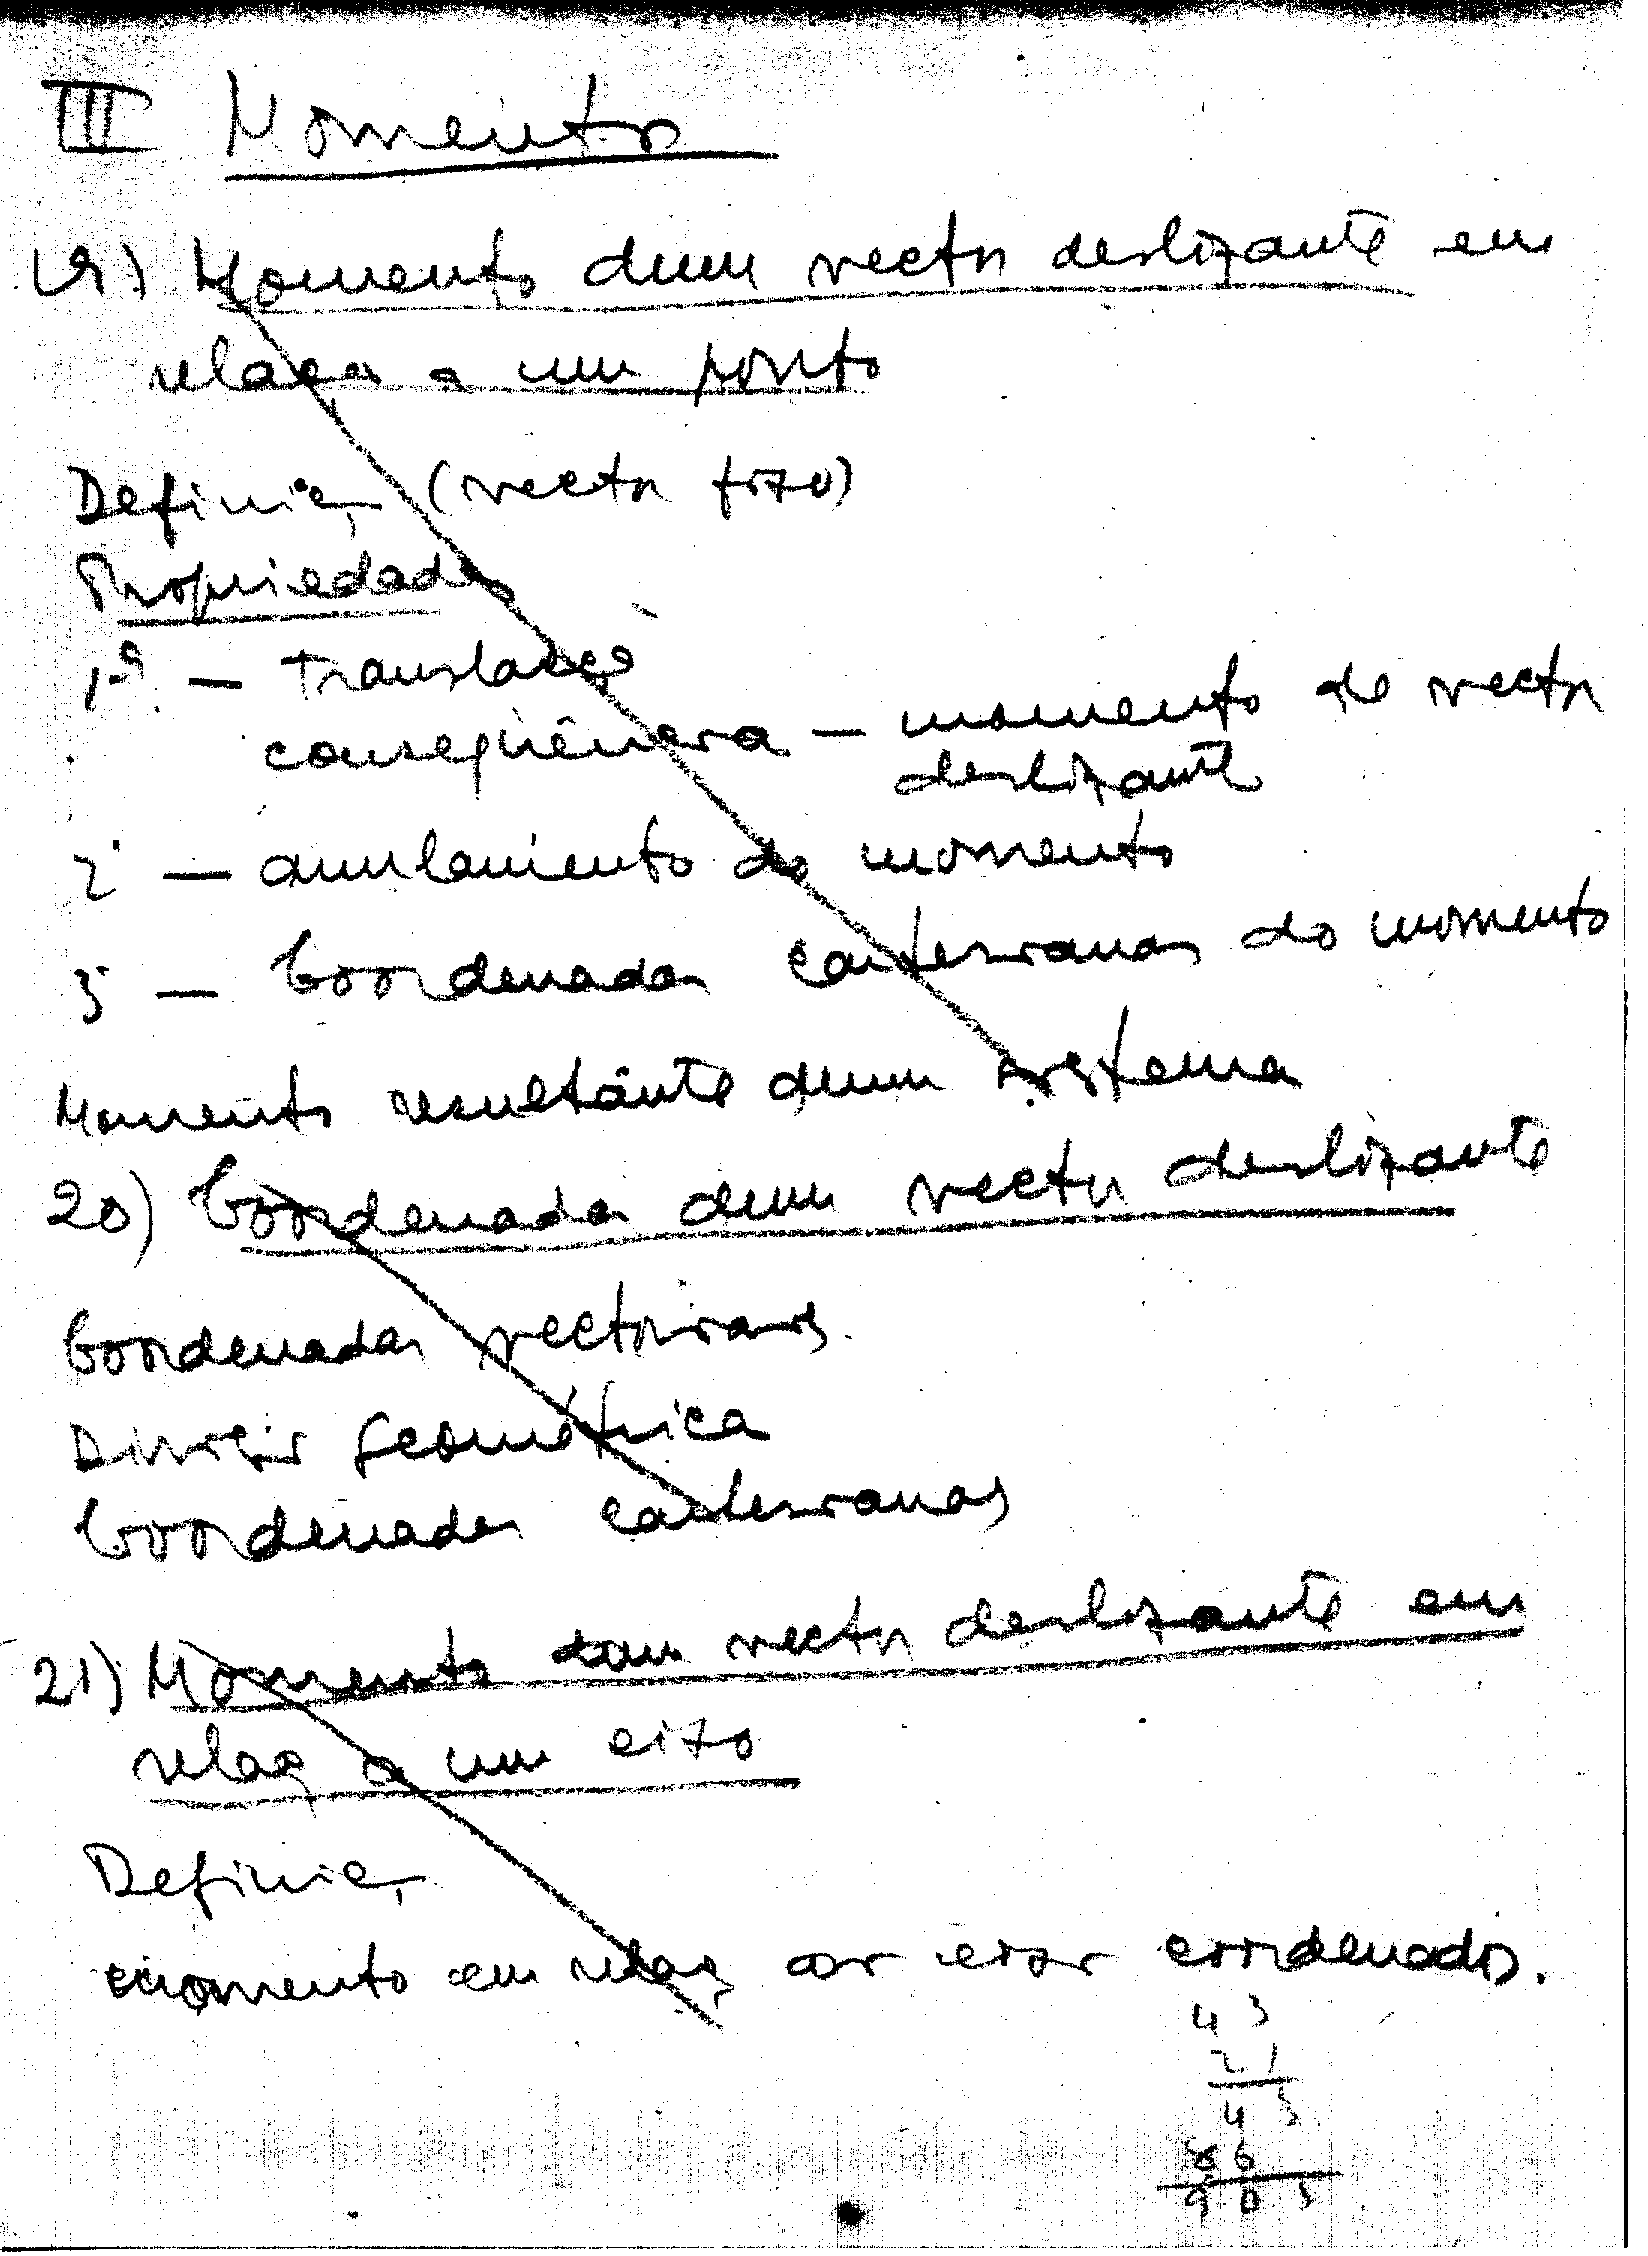 III Momento
19) Momento dum vector deslizante em
relação a um ponto
Definição (vector fixo)
Propriedades
1ª — Translação
conseqüência — momento de vector
deslizante
2ª — anulamento do momento
3ª — Coordenadas cartesianas do momento
Momento resultante dum sistema
20) Coordenadas dum vector deslizante
Coordenadas vectoriais.
Divisão geométrica
Coordenadas cartesianas
21) Momento dum vector deslizante em
relação a um eixo
Definição
Momento em relação aos eixos coordenados.
43
21
43
86
903